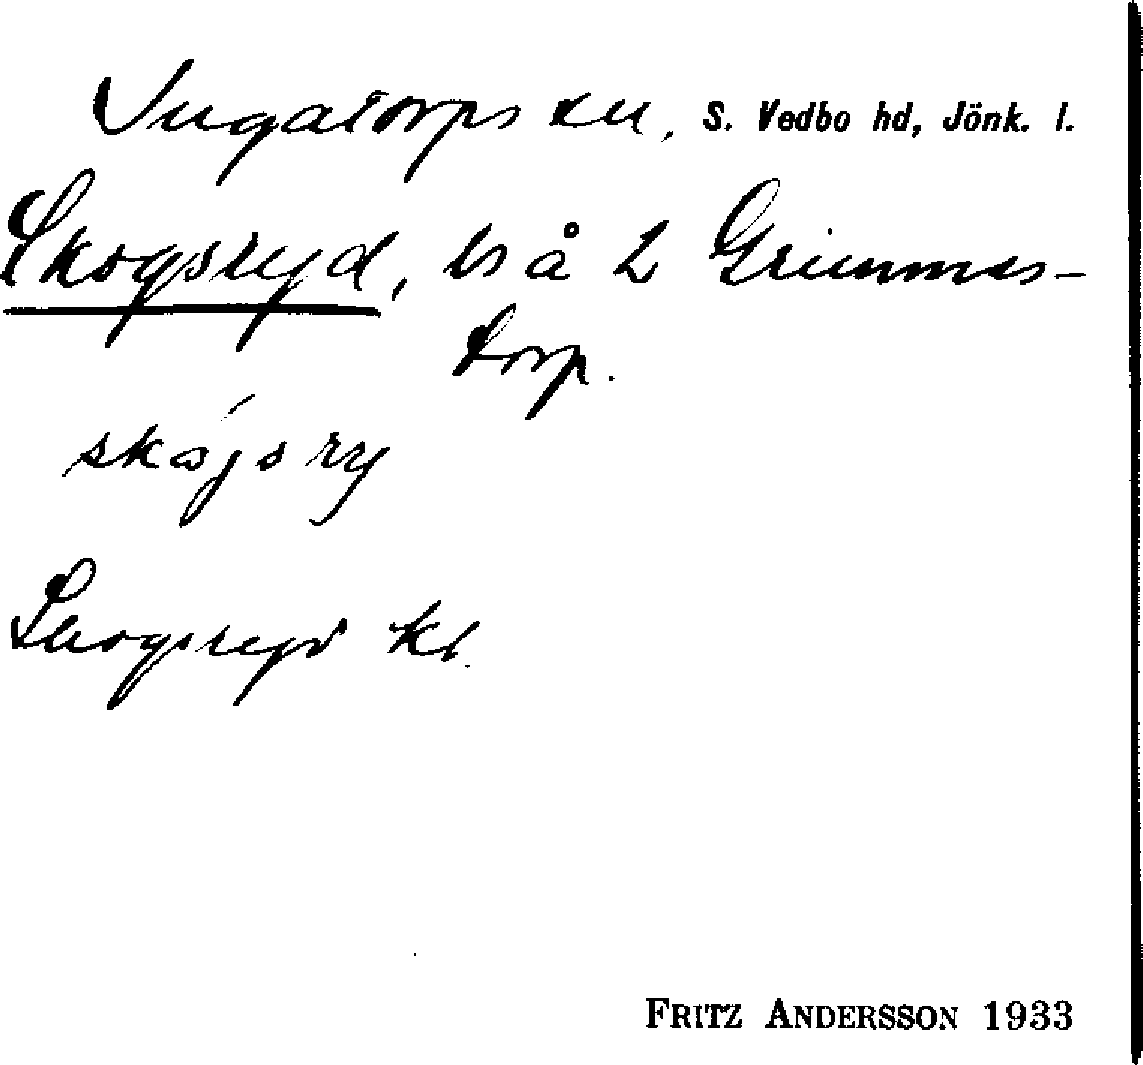 Ingatorps sn, S. Vedbo hd, Jönk. l.
Skogsryd, bs å 2 Grimmes-
torp.
skógsry
Skogsryd kl
FRITZ ANDERSSON 1933